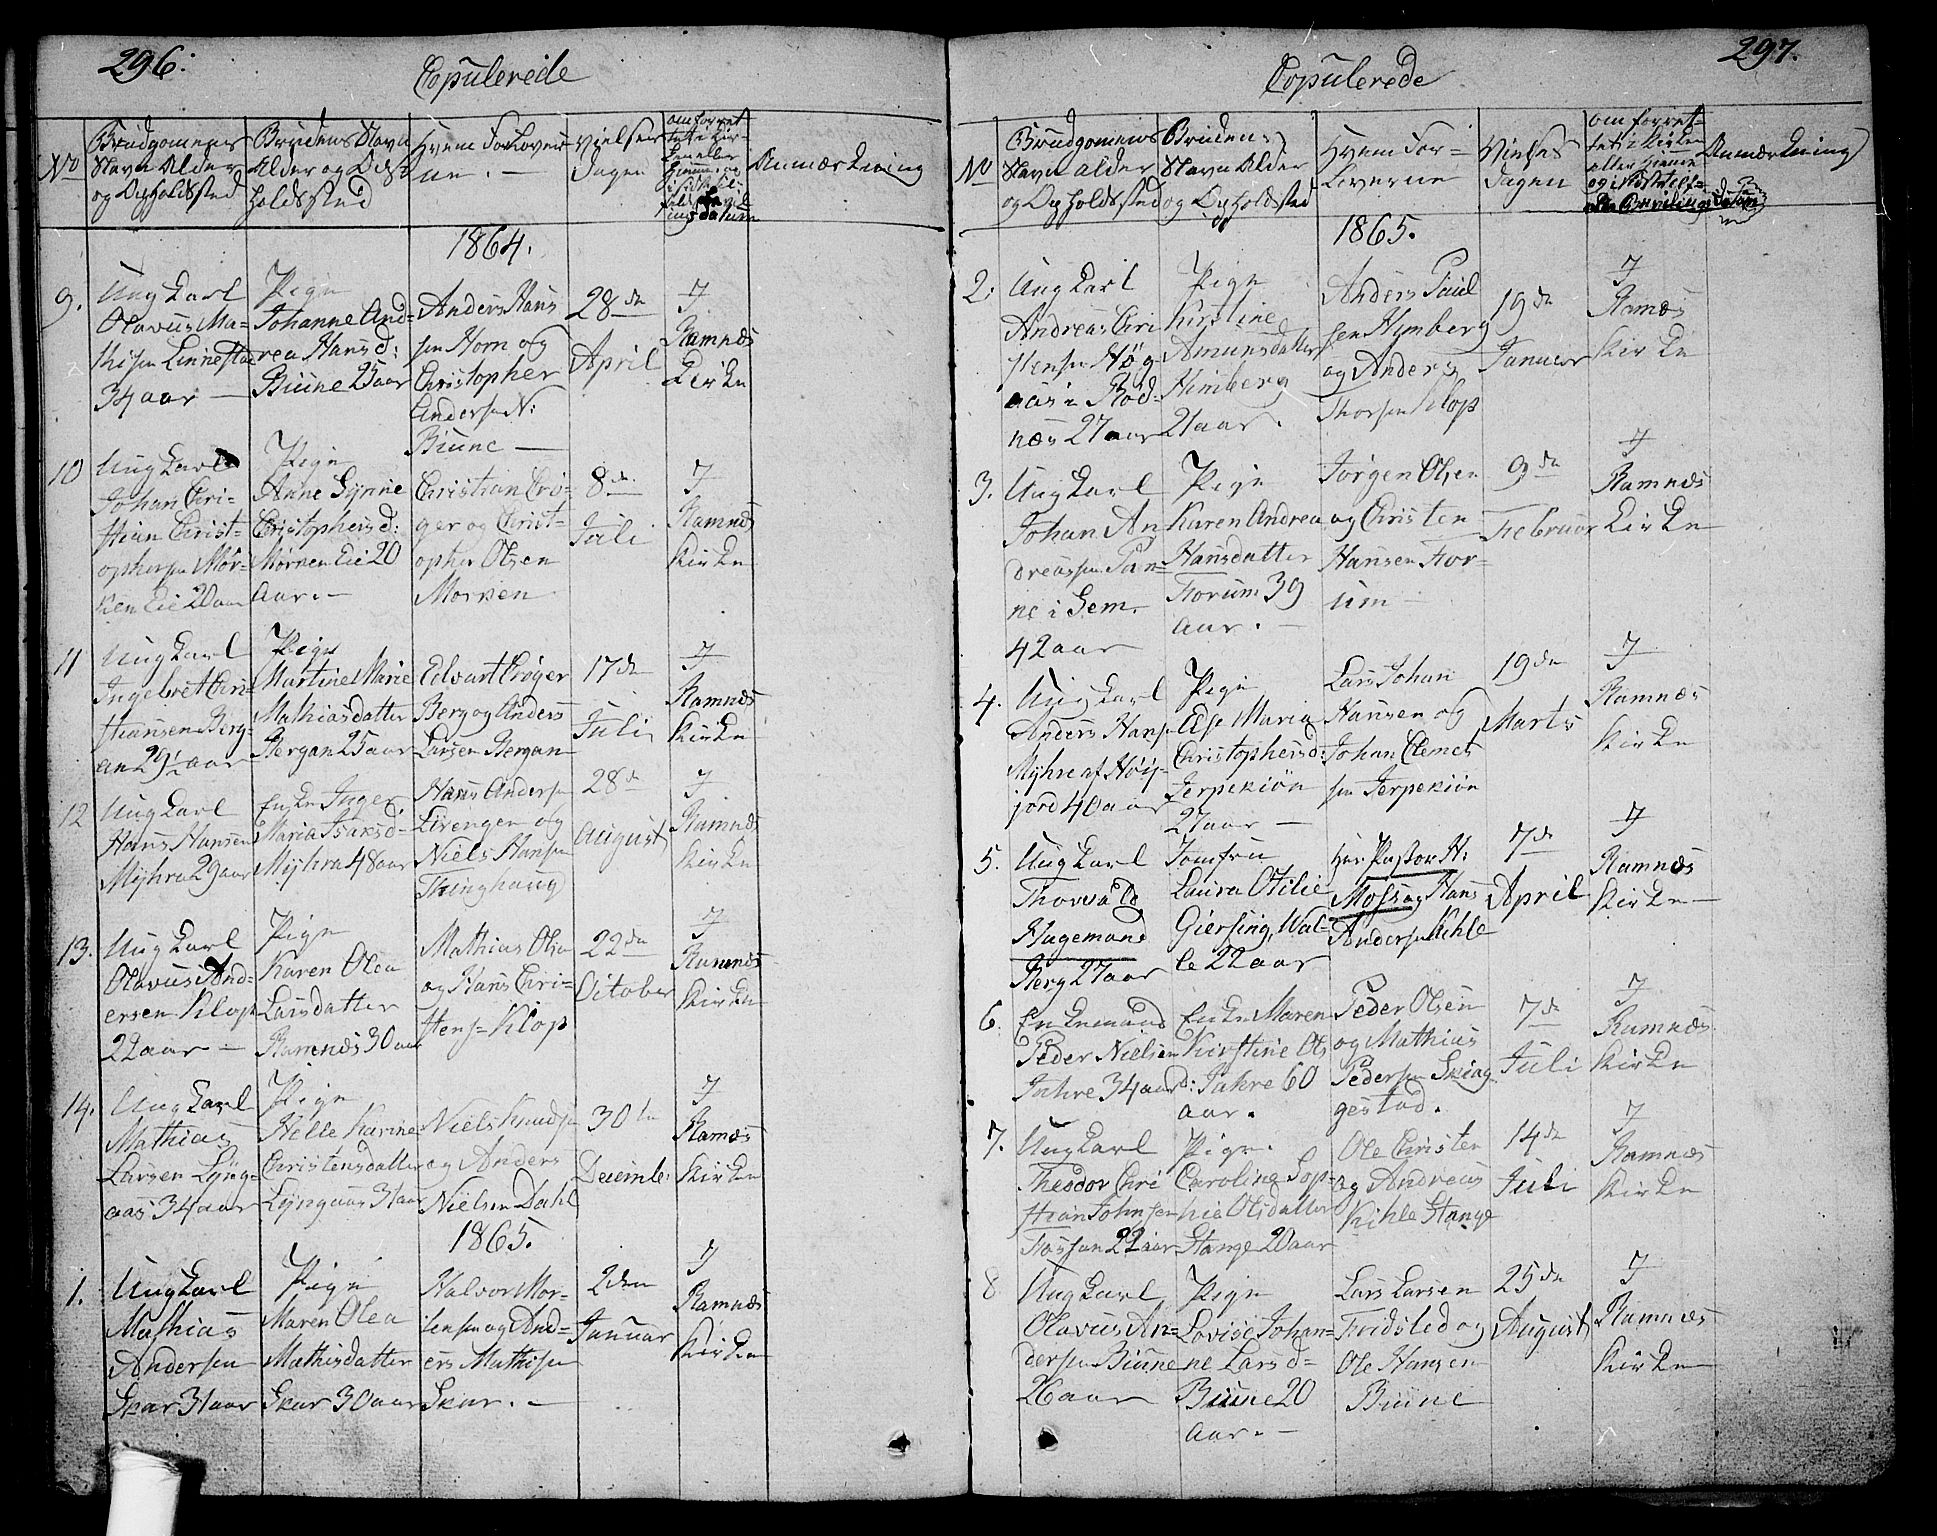 296.
Copulerede
No
Brudgomens
Navn Alder
og Opholdsted
Brudens Navn
Alder og Op-
holdsted
Hvem Forlover-
ne. -
vielses
Dagen
om forret-
tet i Kir-
ken eller
Anmærkning
1864.
9.
Ung Karl
Olavus Ma-
thisen Linnestad
34 aar -
Pige
Johanne And-
rea Hansd:
Biune 25 aar
Anders Hans
sen Horn og
Christopher
Andersen N:
Biune -
28de
April
I
Ramnæs
Kirke
10
Ung Karl
Johan Chri-
stian Christ-
ophersen Mør-
ken Eie 20 aar
Pige
Anne Gynne
Christophersd:
Mørken Eie 20
Aar. -
Christian Crø-
ger og Christ-
opher Olsen
Morken
8de
Juli
I
Ramnæs
Kirke
11
Ung Karl
Ingebret Chri-
stiansen Berg-
an 29 1/2 aar
Pige
Martine Marie
Mathiasdatter
Bergan 25 aar
Edvart Crøger
Berg og Anders
Larsen Bergan
17de
Juli
I
Ramnæs
Kirke
12
Ung Karl
Hans Hansen
Myhra 29 aar
Enke Inger
Maria Isaksd-
Myhra 48 aar
Hans Andersen
Lirengen og
Niels Hansen
Thinghaug
28de
August
I
Ramnæs
Kirke
13.
Ung Karl
Olavus And-
ersen Klop
22 aar -
Pige
Karen Olea
Larsdatter
Ramnæs 30 aar
Mathias Olsen
og Hans Chri-
stens= Klop
22de
October
I
Ramnæs
Kirke
14.
Ung Karl
Mathias
Larsen Lyng-
aas 34 aar
Pige
Helle Karine
Christensdatter
Lyngaas 31 aar
Niels Knudsen
og Anders
Nielsen Dahl
30te
Decembe:
I
Ramnæs
Kirke
1865.
1.
Ung Karl
Mathias
Andersen
Skar 31 aar
Pige
Maren Olea
Mathisdatter
Skar 30 aar
Halvor Mor-
tensen og And-
ers Mathisen
Skar. -
2den
Januar
I
Ramnæs
Kirke
297.
Copulerede
No
Brudgomens
Navn alder
og Opholdssted
Brudens
Navn Alder
og Opholdsted
Hvem For-
loverne
Vielses
Dagen
om forret-
tet i Kirken
eller Hjemme
Anmærkning
1865.
2.
Ung Karl
Andreas Chri
stensen Høg
aas i Rod-
næs 27 aar
Pige
Kirstine
Amunsdatter
Himberg
21 aar.
Anders Paul
sen Hymberg
og Anders
Thorsen Klop
19de
Januar
I
Ramnæs
Kirke
3.
Ung Karl
Johan An
dreassen Tan-
ne i Sem
42 aar
Pige
Karen Andrea
Hansdatter
Forum 39
aar. -
Jørgen Olsen
og Christen
Hansen For-
um -
9de
Februar
I
Ramnæs
Kirke
4.
Ung Karl
Anders Hans
Myhre af Høy-
jord 40 aar
Pige
Else Maria
Christophersd:
Jerpekiøn
27 aar -
Lars Johan
Hansen og
Johan Clemet
sen Jerpekiøn
19de
Marts
I
Ramnæs
Kirke
5.
Ung Karl
Thorvald
Hagemand
Berg 27 aar
Jomfru
Laura Otilie
Giersing, Wal-
le 22 aar
Her Pastor H:
Moss og Hans
Andersen Kihle
7de
April
I
Ramnæs
Kirke -
6.
Enkemand
Peder Nielsen
Jahre 34 aar
Enke Maren
Kirstine Ols
d: Jahre 60
aar.
Peder Olsen
og Mathias
Pedersen Skiag
gestad.
7de
Juli
I
Ramnæs
Kirke
7.
Ung Karl
Theodor Chri
stian Johnsen
Fossan 22 aar
Pige.
Caroline Sop-
hie Olsdatter
Stange 20 aar
Ole Christen
og Andreas
Kihle Stange
14de
Juli
I
Ramnæs
Kirke
8
Ung Karl
Olavus An-
dersen Biune
26 aar
Pige
Lovise Johan-
ne Larsd-
Biune 20
aar. -
Lars Larsen
Fridsted og
Ole Hansen
Biune
25de
August
I
Ramnæs
Kirke